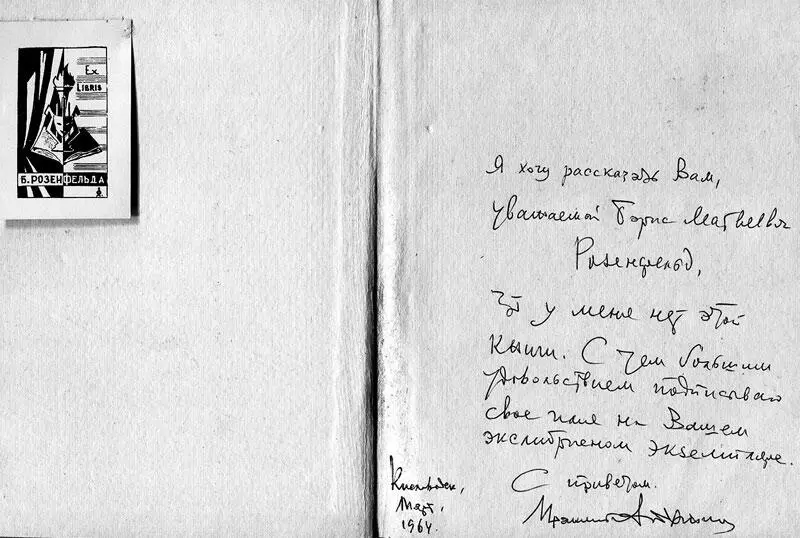 Ex
LIBRIS
Б. РОЗЕНФЕЛЬДА
Я хочу рассказать Вам,
уважаемой Борис Матвеевич
Розенфельд,
Что у меня нет этой
книги. С тем большим
удовольствием подписываю
свое имя на Вашем
экслибрисном экземпляре.
С приветом.
Кисловодск,
Март,
1964.